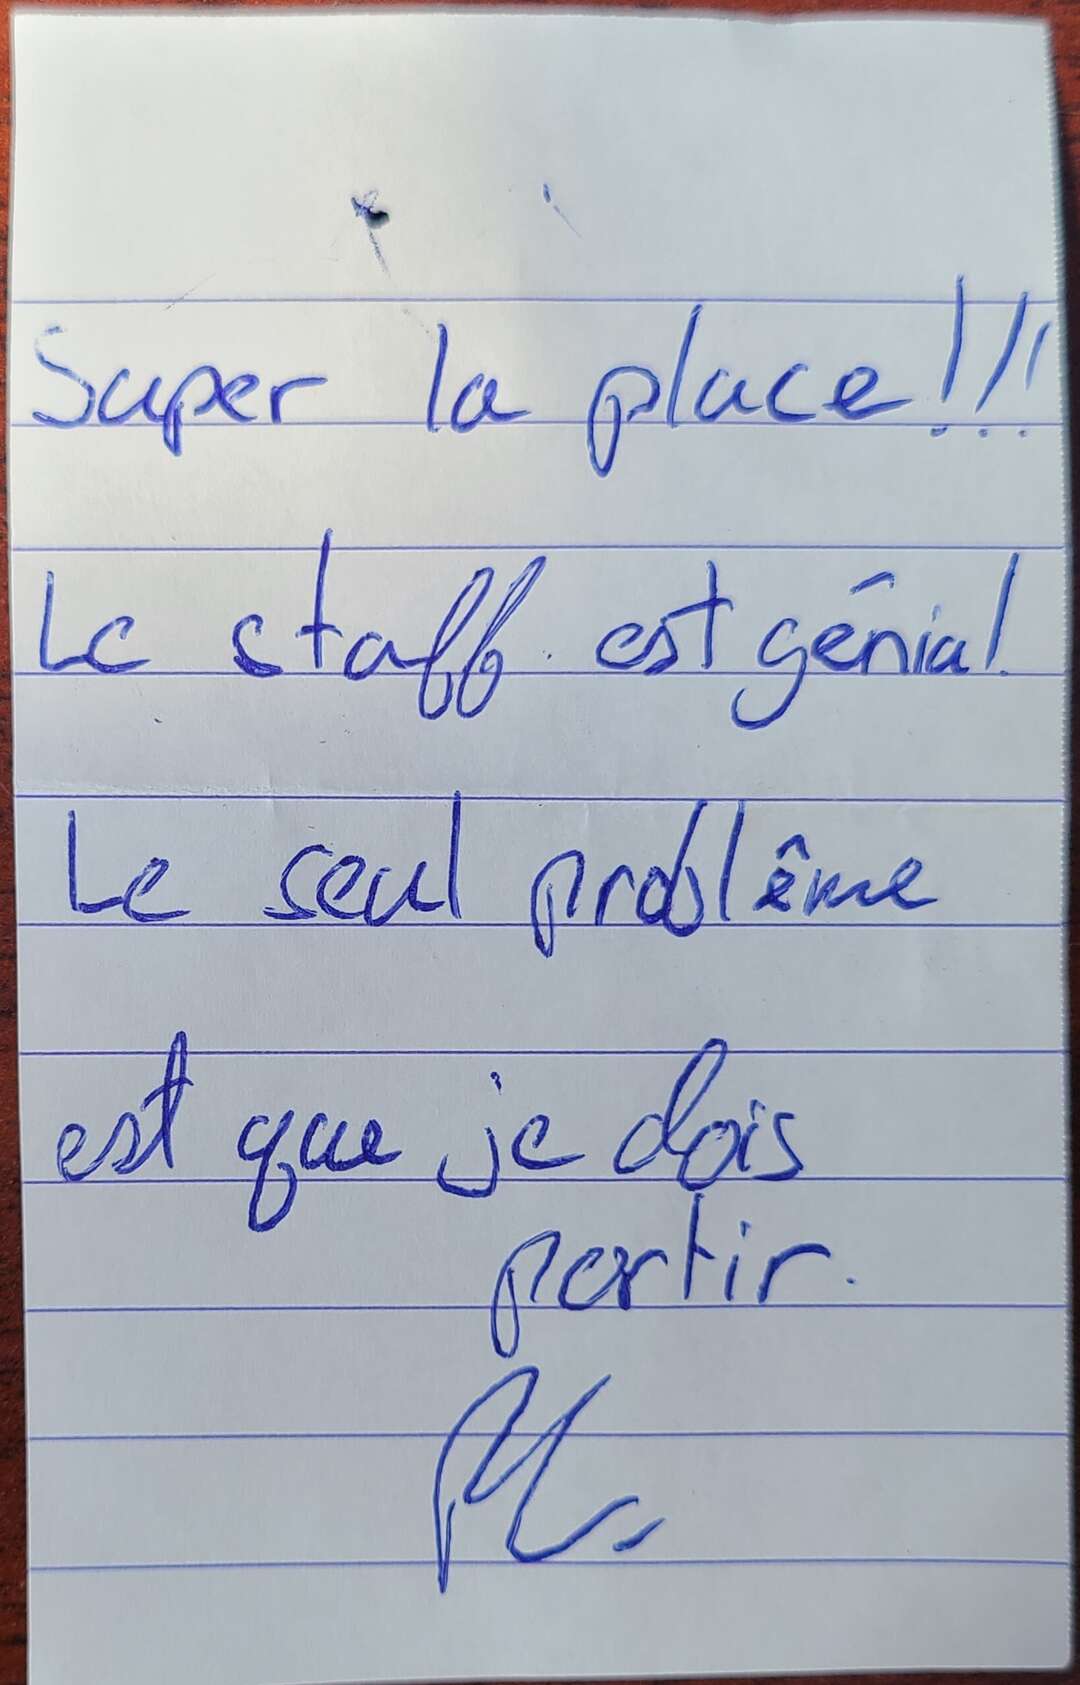 Super la place!!!
Le staff est génial.
Le seul problême
est que je dois
partir.